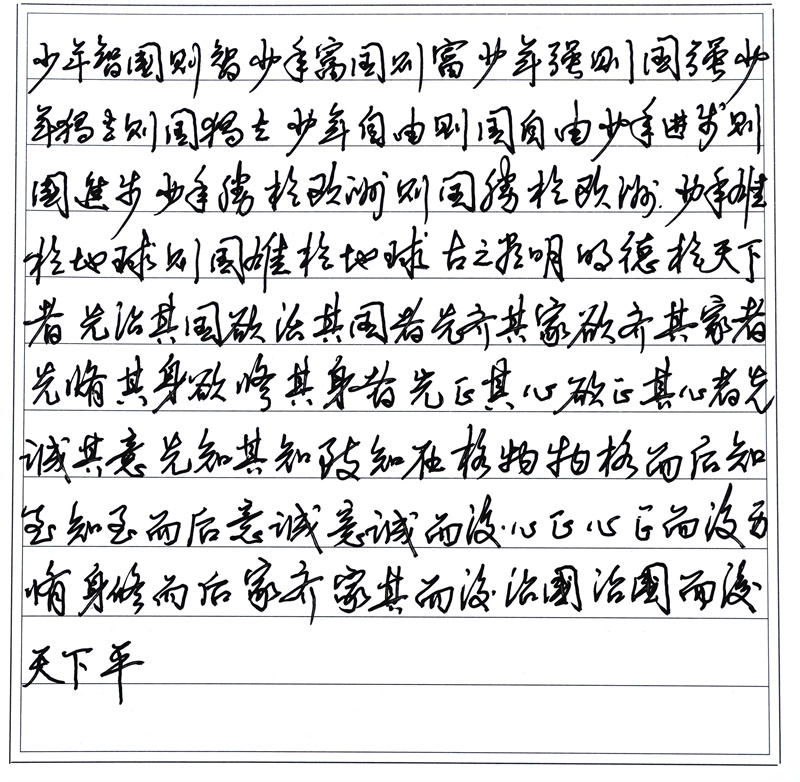 少年智國则智少年富国则富少年强则国强少
年獨立则国獨立少年自由则国自由少年进步则
國進步少年勝於欧洲则国勝於欧洲少年雄
於地球则国雄於地球古之欲明明德於天下
者先治其国欲治其国者先齐其家欲齐其家者
先脩其身欲修其身者先正其心欲正其心者先
诚其意先知其知致知在格物物格而后知
至知至而后意诚意诚而後心正心正而後
脩身修而后家齐家其而後治國治國而後
天下平